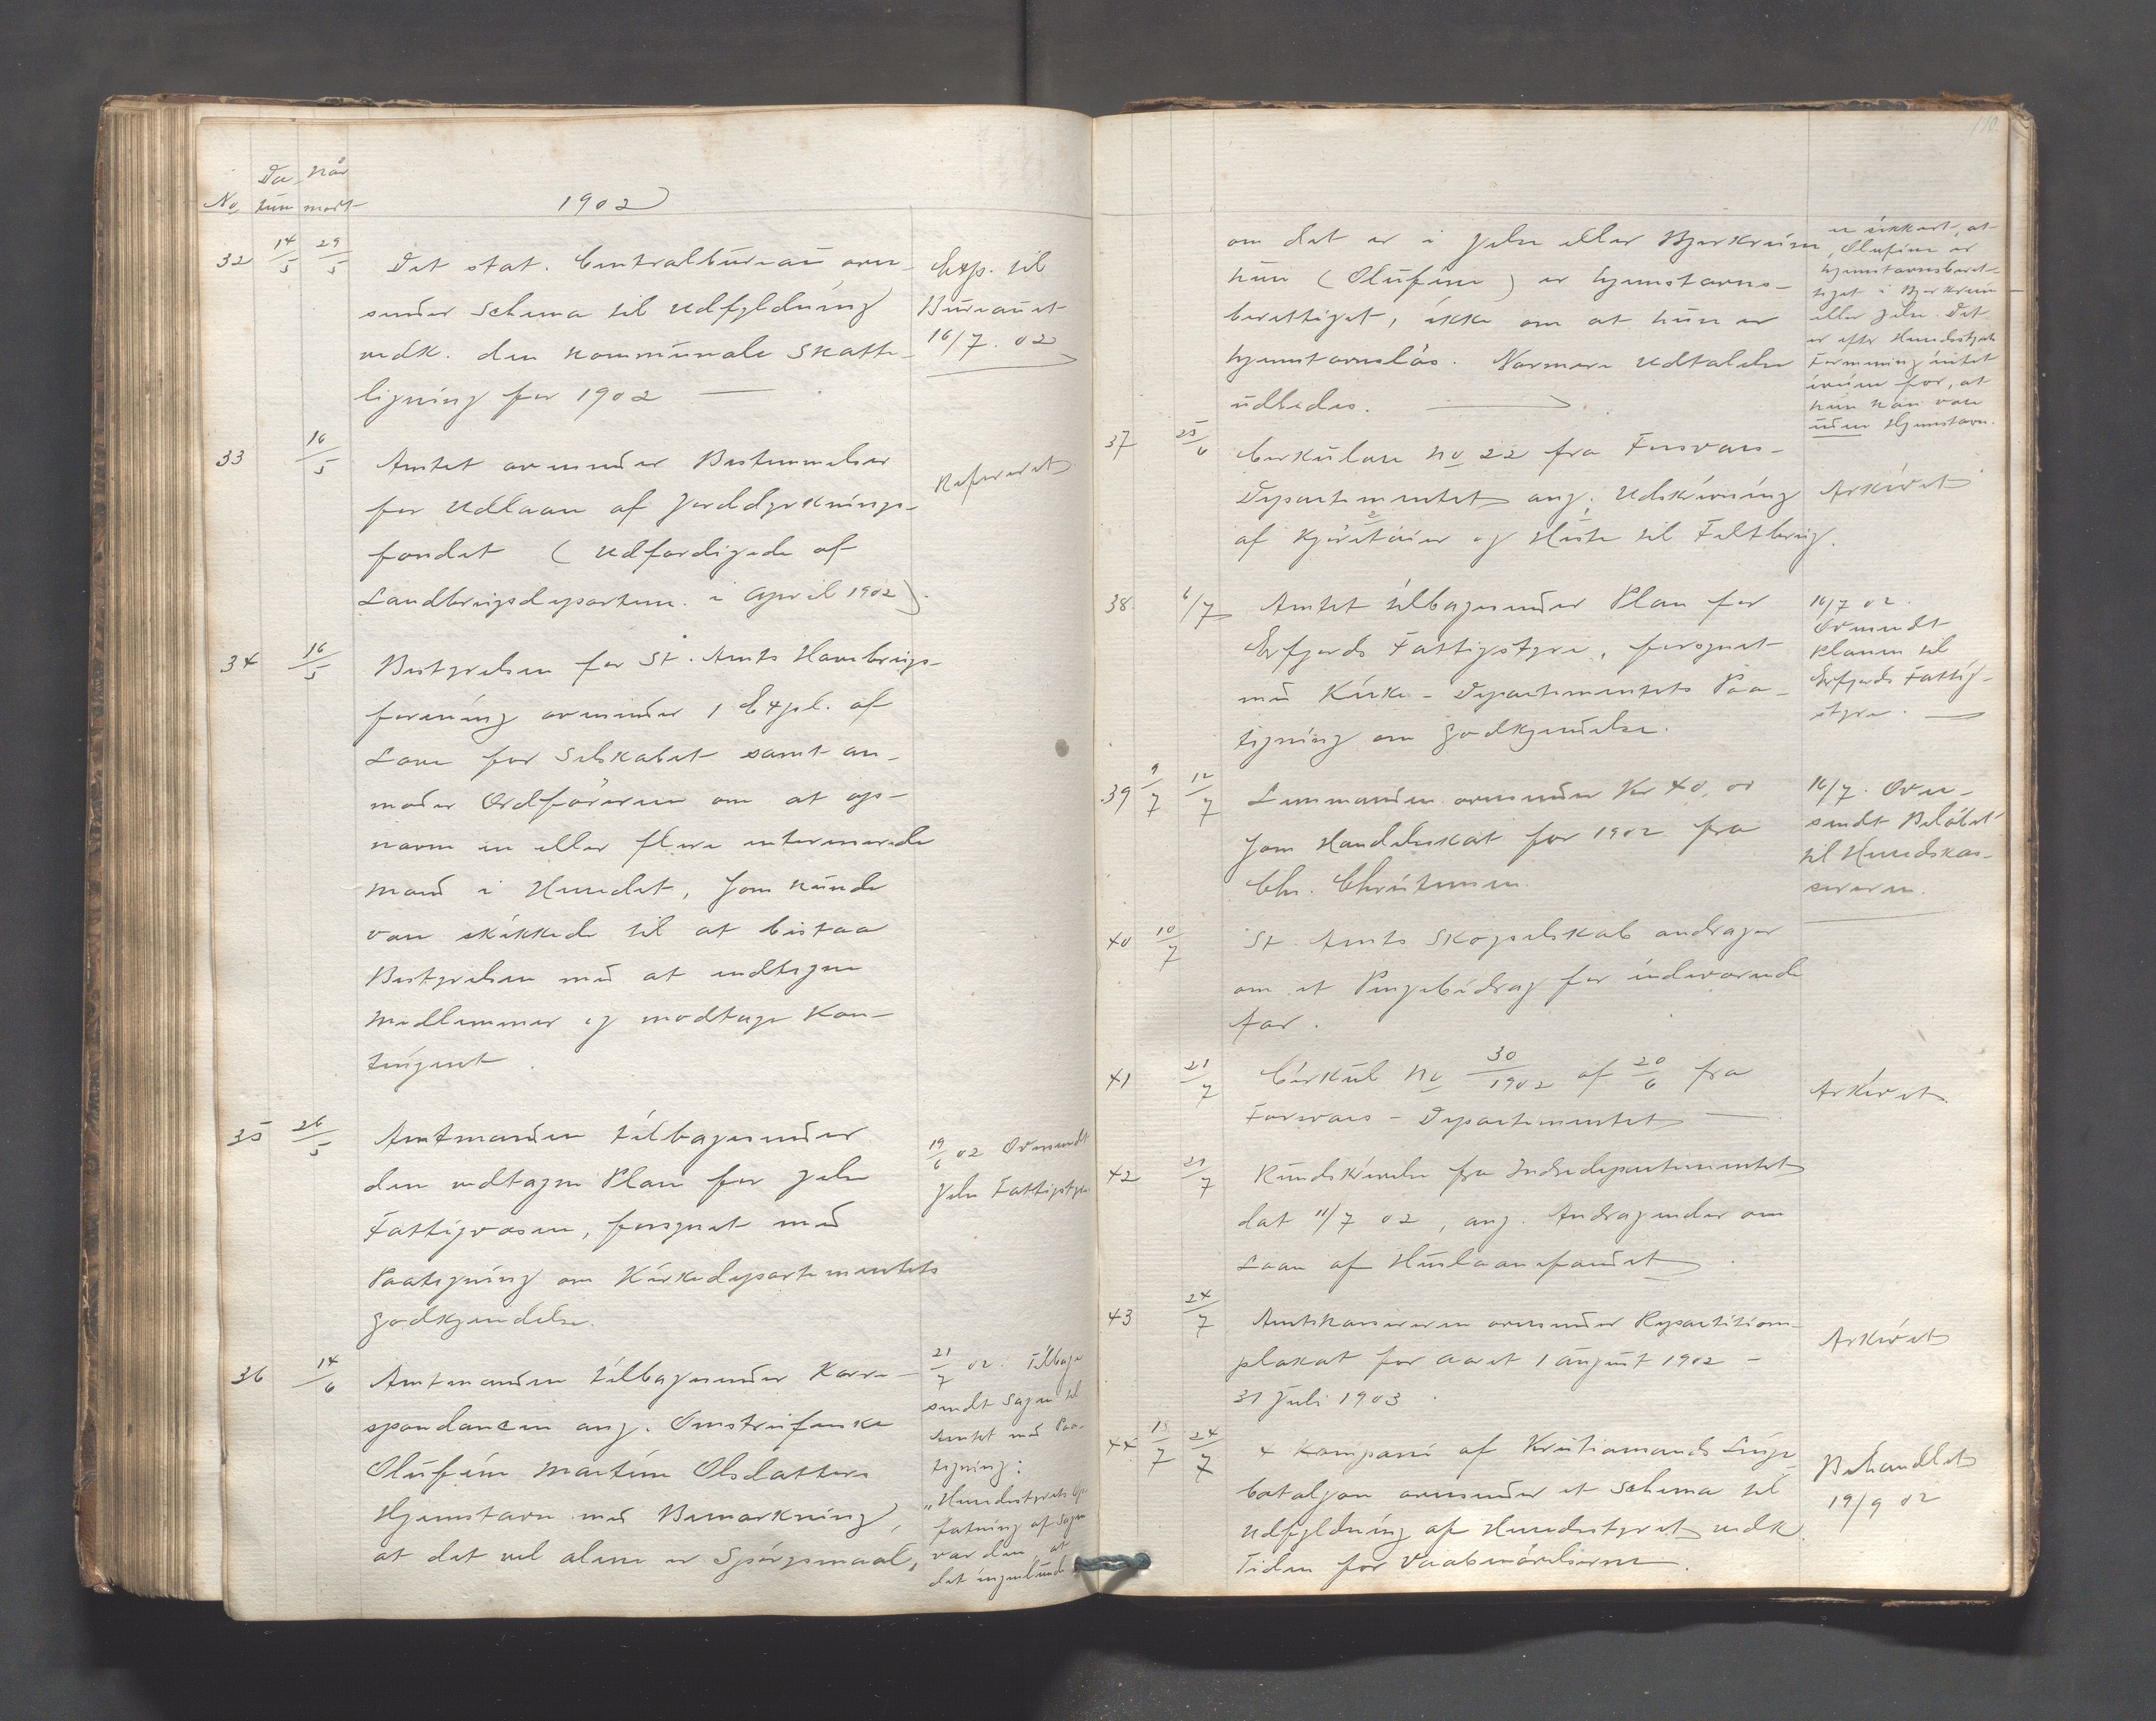 No Da tum Når modt
1902
32 14/5 29/5 Det stat. Centralbureau over-
sender Schema til Udfyldning
vedk. den kommunale Skatte-
ligning for 1902 —
Exp. til
Bureauet
16/7. 02
33 16/5 Amtet oversender Bestemmelser
for Udlaan af Jorddyrknings-
fondet (Udfærdigede af
Landbrugsdepartem. i April 1902).
Refereret
34 16/5 Bestyrelsen for St. Amts Havebrugs-
forening oversender 1 Expl. af
Love for Selskabet samt an-
moder Ordføreren om at op-
nævne en eller flere interesserede
mænd i Herredet, som kunde
være skikkede til at bistaa
Bestyrelsen med at indtegne
Medlemmer og modtage Kon-
tingent.
35 26/5 Amtmanden tilbagesender
den vedtagne Plan for Jelse
Fattigvæsen, forsynet med
Paategning om Kirkedepartementets
Godkjendelse.
19/6 02 Oversendt
Jelse Fattigstyre
36 14/6 Amtmanden tilbagesender Korre-
spondancen ang. Omstreiferske
Olufine Martine Olsdatters
Hjemstavn med Bemærkning,
at det vel alene er Spørgsmaal,
21/7 02. Tilbage
sendt Sagen til
Amtet med Paa-
tegning:
"Herredsstyrets Op
fatning af Sagen
var den, at
det ingenlunde
110
om det er i Jelse eller Bjerkreim
hun (Olufine) er hjemstavns-
berettiget, ikke om at hun er
hjemstavnsløs. Nærmere Udtalelse
udbedes.
er sikkert, at
Olufine er
hjemstavnsberet-
tiget i Bjerkreim
eller Jelse. Det
er efter Herredsstyrets
Formening intet
iveien for, at
hun kan være
uden Hjemstavn.
37 25/6 Cirkulære No 22 fra Forsvars-
Departementet ang. Udskrivning
af Kjøretøier og Heste til Feltbrug.
Arkivet
38. 6/7 Amtet tilbagesender Plan for
Erfjords Fattigstyre, forsynet
med Kirke-Departementets Paa-
tegning om Godkjendelse.
16/7 02.
Oversendt
Planen til
Erfjords Fattig-
styre.
39 9/7 12/7 Lensmanden oversender Kr 40,00
som Handelsskat for 1902 fra
Chr. Christensen.
16/7. Over-
sendt Beløbet
til Herredskas-
sereren.
40 10/7 St. Amts Skogselskab andrager
om et Pengebidrag for indeværende
Aar.
41 21/7 Cirkul No 30/1902 af 20/6 fra
Forsvars-Departementet —
Arkivet
42 21/7 Rundskrivelse fra Indredepartementet
dat 11/7 02, ang. Andragender om
Laan af Huslaanefondet.
43 24/7 Amtskassereren oversender Repartitions-
plakat for Aaret 1 August 1902 -
31 Juli 1903.
Arkivet
44 18/7 24/7 4 Kompani af Kristiansands Linje-
bataljon oversender et Schema til
Udfyldning af Herredsstyret vedk.
Tiden for Vaabenøvelserne.
Behandlet
19/9 02